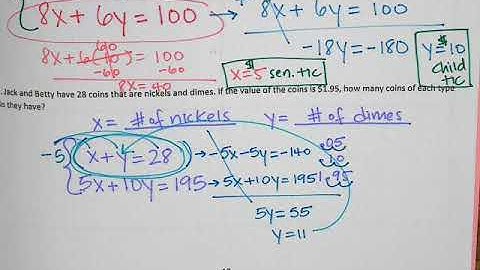 8x + 6y = 100
8x + 6y = 100
60
8x + 6(10) = 100
-60 -60
8x = 40
-18y = -180
x = $5 sen. tic
y = $10 child tic
Jack and Betty have 28 coins that are nickels and dimes. If the value of the coins is $1.95, how many coins of each type
do they have?
x = # of nickels y = # of dimes
-5 x + y = 28 → -5x - 5y = -140 .05
.10
5x + 10y = 195 → 5x + 10y = 195 1.95
5y = 55
y = 11